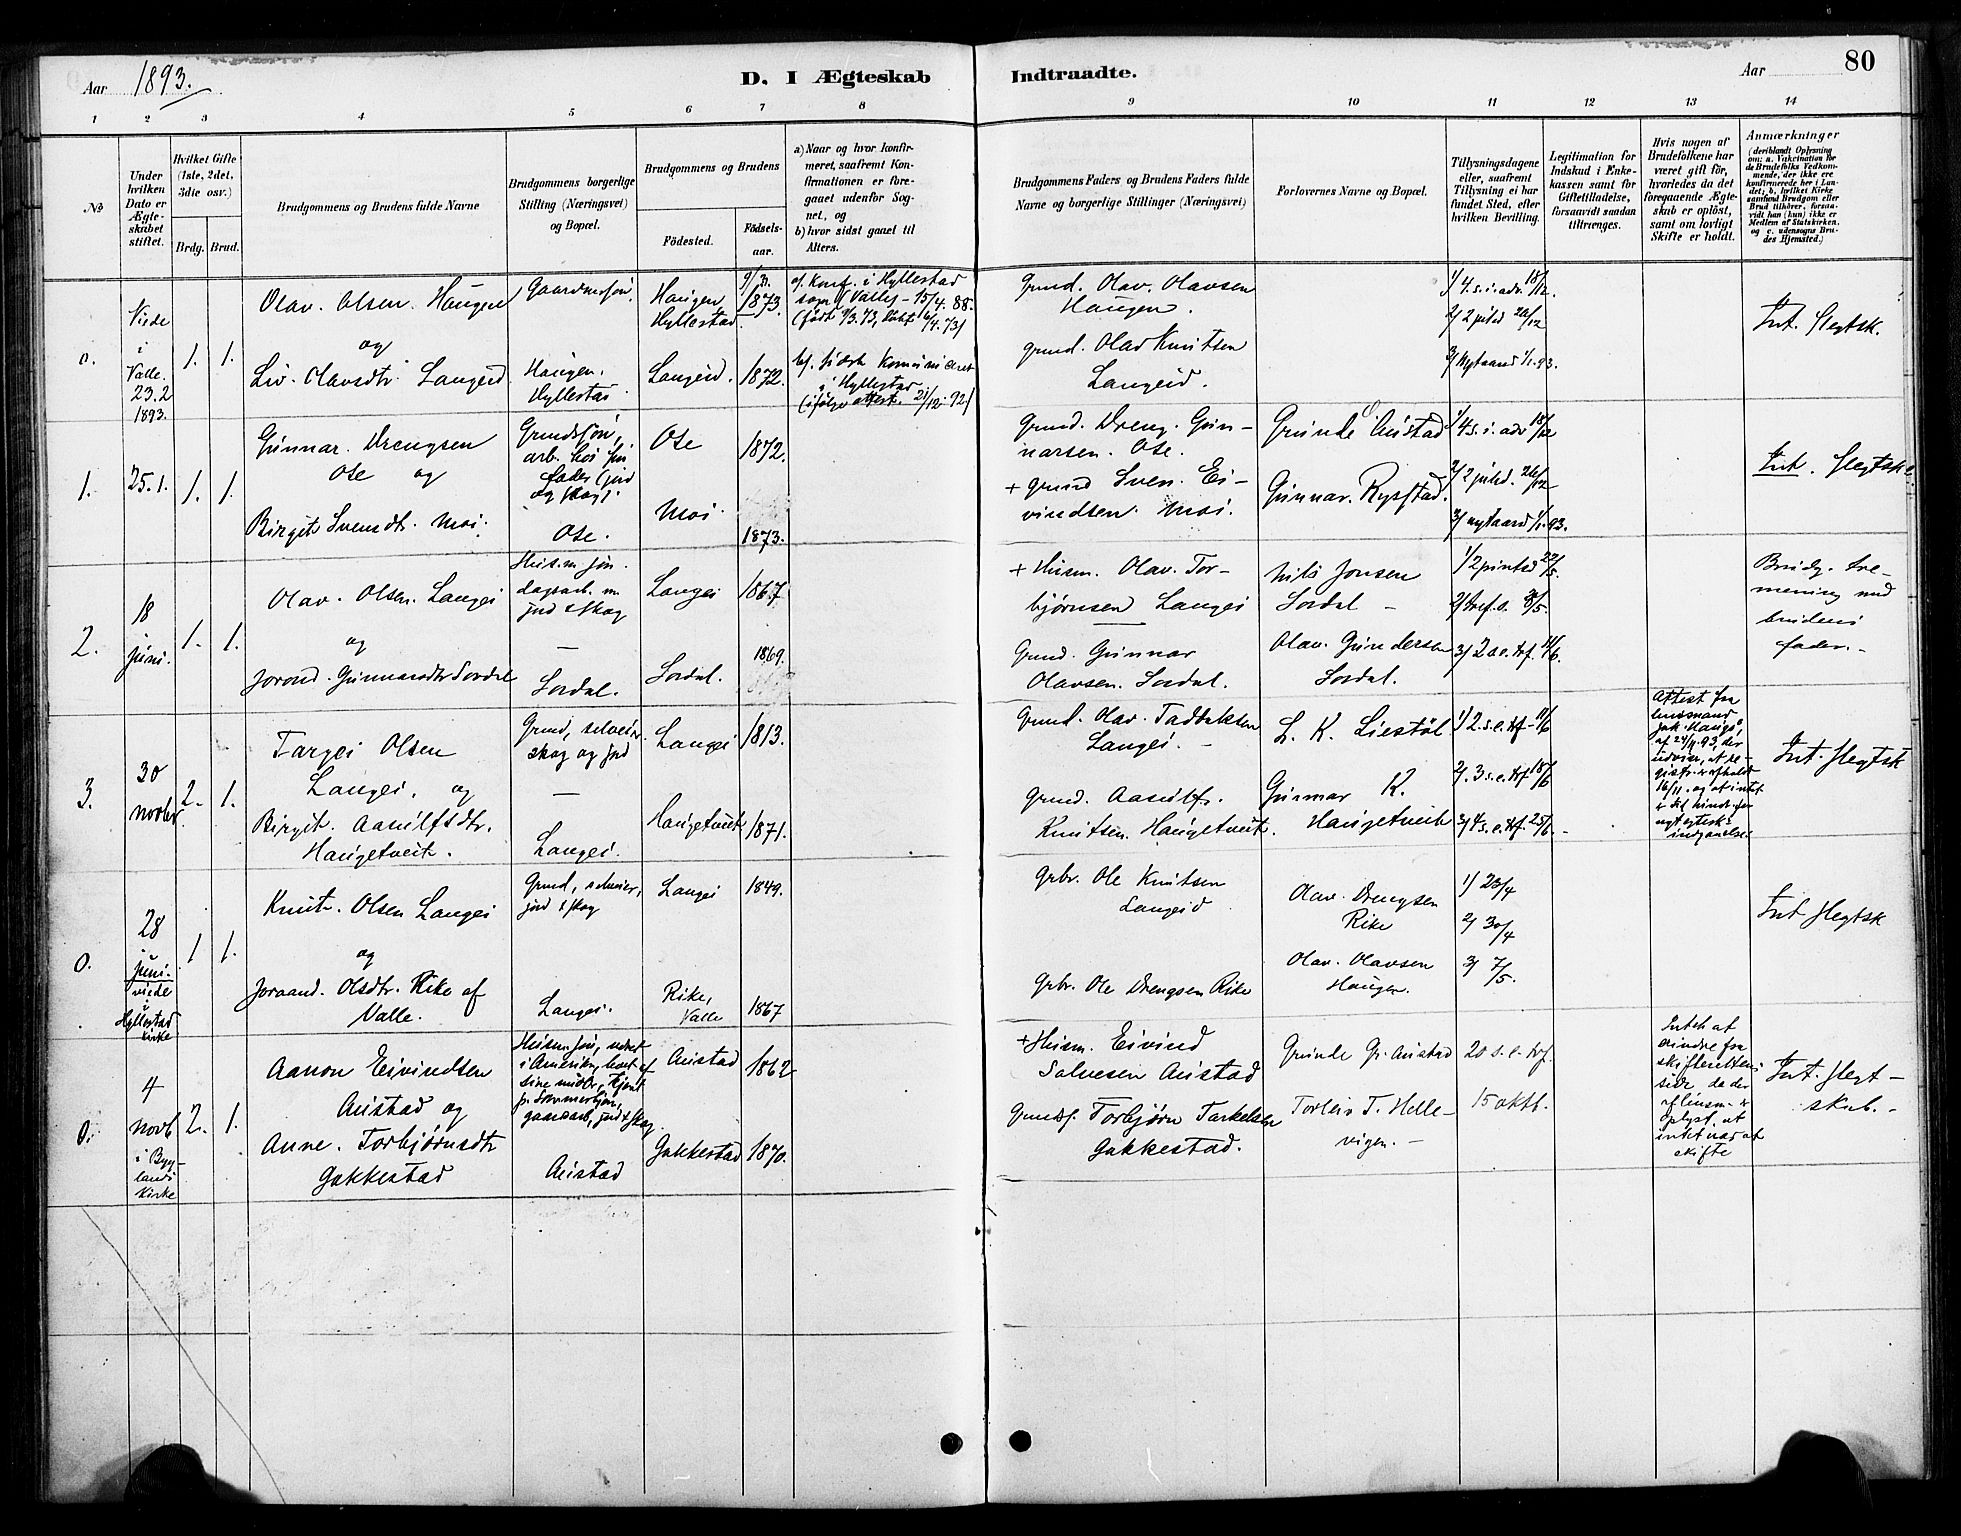 Aar 1893.
D. I Ægteskab
Indtraadte.
Aar
80
1 2 3 4 5 6 7 8 9 10 11 12 13 14
No
Under hvilken Dato er Ægteskabet stiftet.
Hvilket Gifte (1ste, 2det, 3die osv.)
Brdg. Brud.
Brudgommens og Brudens fulde Navne
Brudgommens borgerlige Stilling (Næringsvei) og Bopæl.
Brudgommens og Brudens
Fødested.
Fødselsaar.
a) Naar og hvor konfirmeret, saafremt Konfirmationen er foregaaet udenfor Sognet, og
b) hvor sidst gaaet til Alters.
Brudgommens Faders og Brudens Faders fulde Navne og borgerlige Stillinger (Næringsvei)
Forlovernes Navne og Bopæl.
Tillysningsdagene eller, saafremt Tillysning ei har fundet Sted, efter hvilken Bevilling.
Legitimation for Indskud i Enkekassen samt for Giftetilladelse, forsaavidt saadan tiltrænges.
Hvis nogen af Brudefolkene har været gift, hvorledes da det foregaaende Ægteskab er opløst, samt om lovligt Skifte er holdt.
Anmærkninger
(deriblandt Oplysning om: a. Vakcination for de Brudefolks Vedkommende, der ikke ere konfirmerede her i Landet; b. hvilket Kirkesamfund Brudgom eller Brud tilhører, forsaavidt han (hun) ikke er Medlem af Statskirken, og c. udensogns Brudes Hjemsted.)
0.
Viede
i
Valle.
23.2
1893.
1. 1.
Olav. Olsen. Haugen
og
Liv. Olavsdtr. Langeid.
Gaardmersøn.
Haugen.
Hyllestad.
Haugen
Hyllestad.
Langeid.
9/3.
1873.
1872.
a. Konf. i Hyllestad
sogn (Valle) - 15/4. 88.
(født 9/3. 73, døbt 6/4. 73)
b. sidst kommuniceret
i Hyllestad
(ifølge attest. 21/12. 92)
Grund. Olav. Olavsen
Haugen.
grund. Olav Knutsen
Langeid.
1/ 4. s. i. adv. 18/12.
2/ 2 juled 26/12
3/ Nytaarsd 1/1. 93.
Int. Slegtsk.
1.
25.1.
1. 1.
Gunnar. Drengsen
Ose og
Birgit Svensdtr. Moi.
Grundssøn,
arb. hos sin
fader (jord
og skog).
Ose.
Ose
Moi
1872.
1873.
Grund. Dreng. Gunnarsen. Ose.
+ grund Sven. Eivindsen. Moi.
Grunde Austad
Gunnar. Rysstad.
1/ 4 s. i. adv 18/12
2/ 2 juled. 26/12
3/ nytaarsd 1/1. 93.
Int. Slegtsk.
2.
18
juni.
1. 1.
Olav. Olsen. Langei
og
Jorond. Gunnarsdtr Sordal
Husm. søn.
dagarb. m
jord & skog
—
Sordal.
Langei
Sordal.
1867.
1869.
+ Husm. Olav. Torbjørnsen Langei
Grund. Gunnar
Olavsen. Sordal.
Nils Jonsen
Sordal -
Olav. Gundersen
Sordal.
1/ 2 pintsd 22/5.
2/ tref. s. 28/5.
3/ 2 s. e. trf. 11/6.
Brudg. tremening med
brudens
fader. -
3.
30
novbr.
2. 1.
Targei Olsen
Langei. og
Birgit. Aasulfsdtr.
Haugetveit.
Grund, selveier
skog og jord
—
Langei.
Langei
Haugetveit
1813.
1871.
Grund. Olav. Tadeksen
Langei. -
Grund. Aasulf.
Knutsen. Haugetveit.
L. K. Liestøl
Gunnar K.
Haugetveit
1/ 2. s. e. trf - 11/6
2/ 3 s. e. trf 18/6
3/ 4 s. e. trf. 25/6. -
Attest fra
lensmand
af 24/11. 93, der
udviser, at registr. er afholdt
16/11. og at intet
er til hindr. for
nyt egtesk.
indgaaelse
Int. Slegtsk
0.
28
juni.
viede
i
Hyllestad
kirke
1 1.
Knut. Olsen Langei
og
Joraand. Olsdtr. Rike af
Valle.
Grund, selveier,
jord & skog
Langei.
Langei
Rike,
Valle
1849.
1867
Gbr. Ole Knutsen
Langeid
Gbr. Ole Drengsen Rike
Olav. Drengsen
Rike
Olav. Olavsen
Haugen.
1/ 23/4
2/ 30/4
3/ 7/5.
Int Slegtsk
0.
4
novb
i Byglands
kirke
2. 1.
Aanon Eivindsen
Austad og
Anne. Torbjørnsdtr
Gakkestad
Husm. søn, været
i Amerika,
gaardsarb, jord & skog
Austad
Austad
Gakkestad
1862
1870.
+ Husm. Eivind
Salvesen Austad
Grundsf. Torbjørn Tarkelsen
Gakkestad.
Grunde Gr. Austad
Torleiv T. Hellevigen. -
20 s. e. trf.
15 oktb.
Intet at
erindre fra
skifterettens
side, da der
af lensm. er
oplyst, at
intet var at
skifte
Int. Slegtskab. -